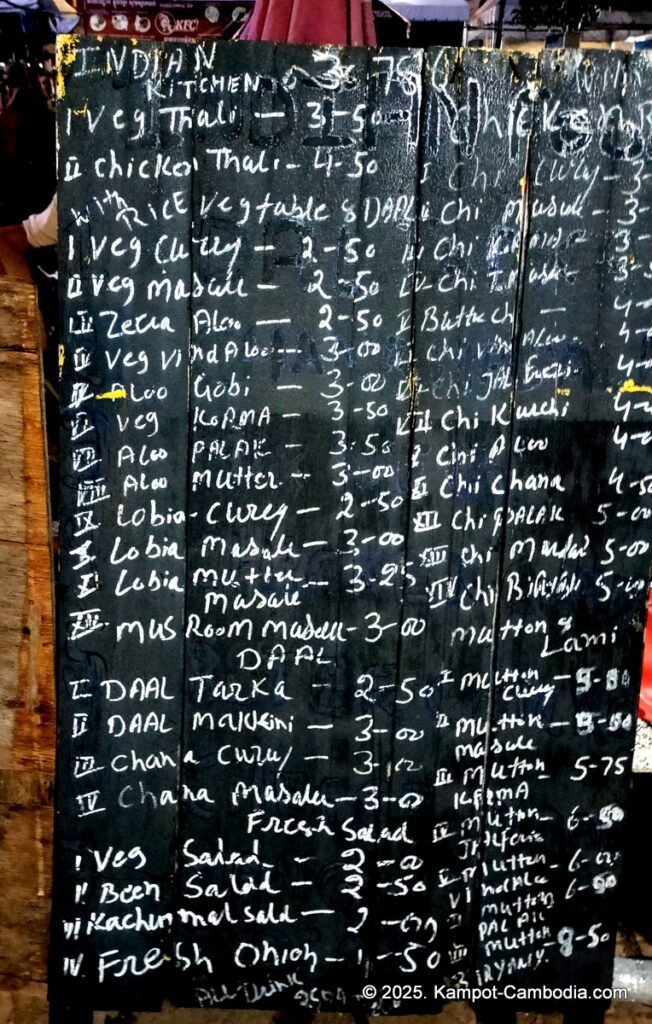 KFC
INDIAN
KITCHEN
I Veg Thali — 3-50
II chicken Thali - 4-50
with RICE vegtable & DAAL
I veg Curry — 2-50
II veg masale — 2-50
III Zeera Aloo — 2-50
IV veg vindAloo — 3-00
V ALOO Gobi — 3-00
VI veg KORMA — 3-50
VII ALOO PALAK — 3-50
VIII ALOO mutter — 3-00
IX Lobia - curry — 2-50
X Lobia masale — 3-00
XI Lobia mutter — 3-25
masale
XII MUSROOM masale - 3-00
DAAL
I DAAL TARKA — 2-50
II DAAL makkini — 3-00
III Chana curry — 3-00
IV Chana masala — 3-00
Fresh Salad
I Veg Salad — 2-00
II Been Salad — 2-50
III Kachummal salad — 2-00
IV Fresh Onion — 1-50
All Drink
I Chi curry - 3-
II Chi masale - 3-
III Chi KORMA - 3-
IV Chi T masale - 3-5
V Butte ch — 4-
VI chi vindAloo 4-
VII Chi JAL 4-
Chi Kurchi 4-
Chi Aloo 4-
XI Chi chana 4-50
XII chi PALAK 5-00
XIII chi 5-00
XIV chi 5-00
mutton &
Lami
I mutton
curry
II mutton
masale
III mutton — 5-75
KORMA
IV mutton — 6-50
V mutton — 6-00
vindaloo
VI mutton 6-00
PALAK
VII mutton — 8-50
BIRYANY.
© 2025. Kampot-Cambodia.com